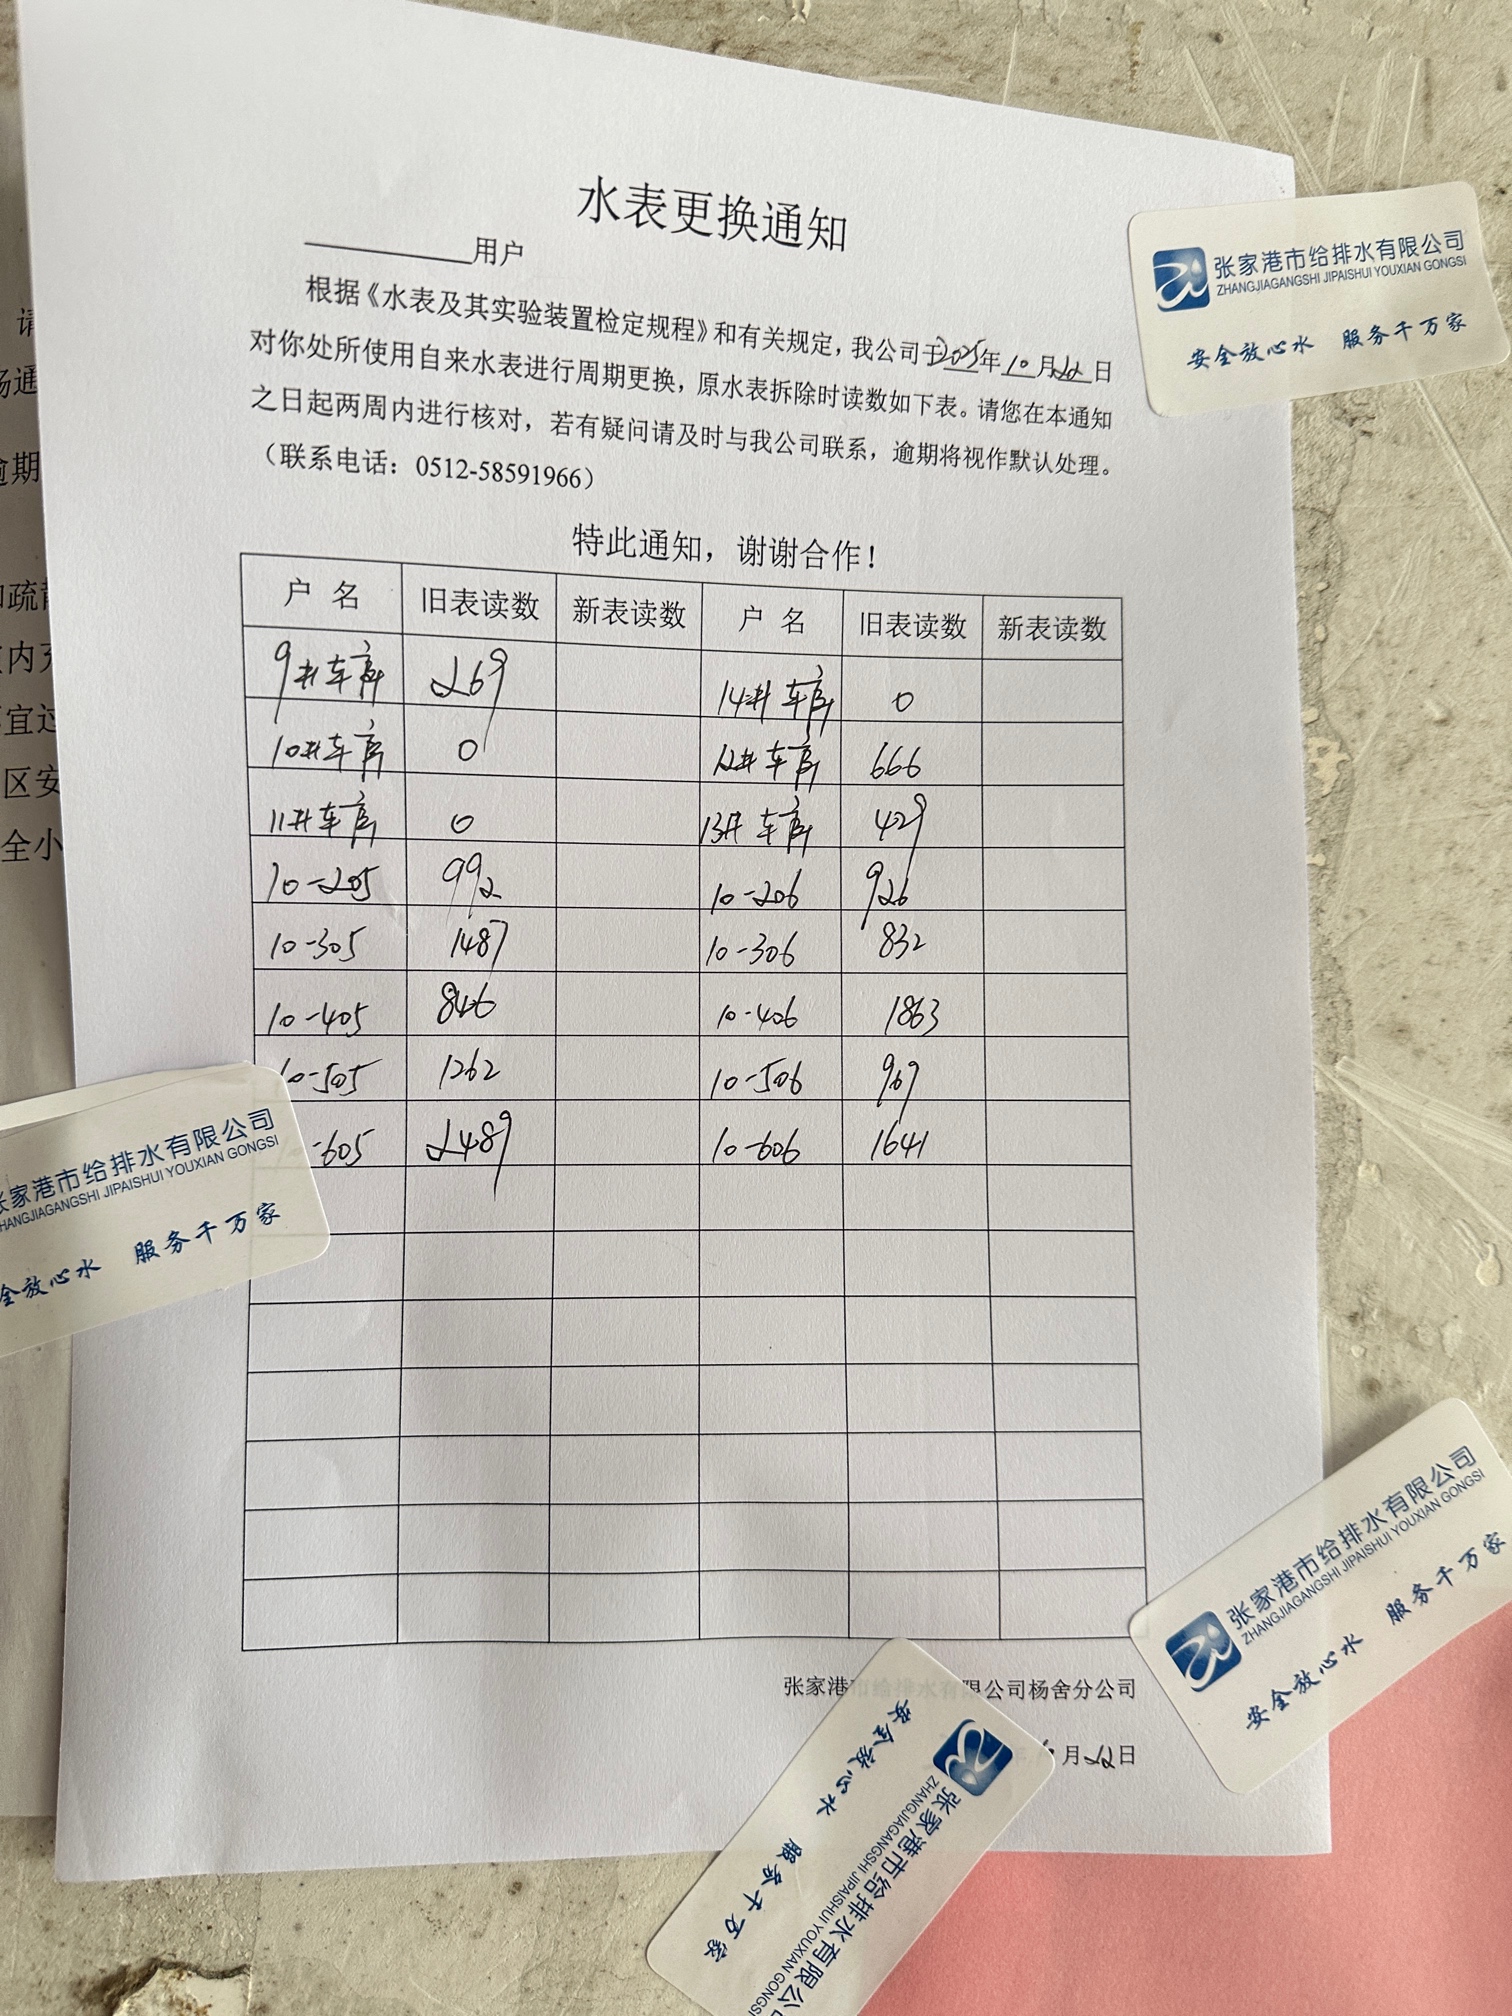 水表更换通知
用户
根据《水表及其实验装置检定规程》和有关规定，我公司于2025年10月22日
对你处所使用自来水表进行周期更换，原水表拆除时读数如下表。请您在本通知
之日起两周内进行核对，若有疑问请及时与我公司联系，逾期将视作默认处理。
（联系电话：0512-58591966）
特此通知，谢谢合作！
户 名 旧表读数 新表读数 户 名 旧表读数 新表读数
9#车库 269 14#车库 0
10#车库 0 12#车库 666
11#车库 0 13#车库 429
10-205 992 10-206 926
10-305 1487 10-306 832
10-405 846 10-406 1863
10-505 1262 10-506 969
-605 2489 10-606 1641
张家港市给排水有限公司杨舍分公司
月22日
张家港市给排水有限公司
ZHANGJIAGANGSHI JIPAISHUI YOUXIAN GONGSI
安全放心水 服务千万家
家港市给排水有限公司
HANGJIAGANGSHI JIPAISHUI YOUXIAN GONGSI
全放心水 服务千万家
张家港市给排水有限公司
ZHANGJIAGANGSHI JIPAISHUI YOUXIAN GONGSI
安全放心水 服务千万家
张家港市给排水有限公
ZHANGJIAGANGSHI JIPAISHUI YOUXIAN GONGS
安全放心水 服务千万家
请
通
逾期
疏
内
宜过
区安
全小